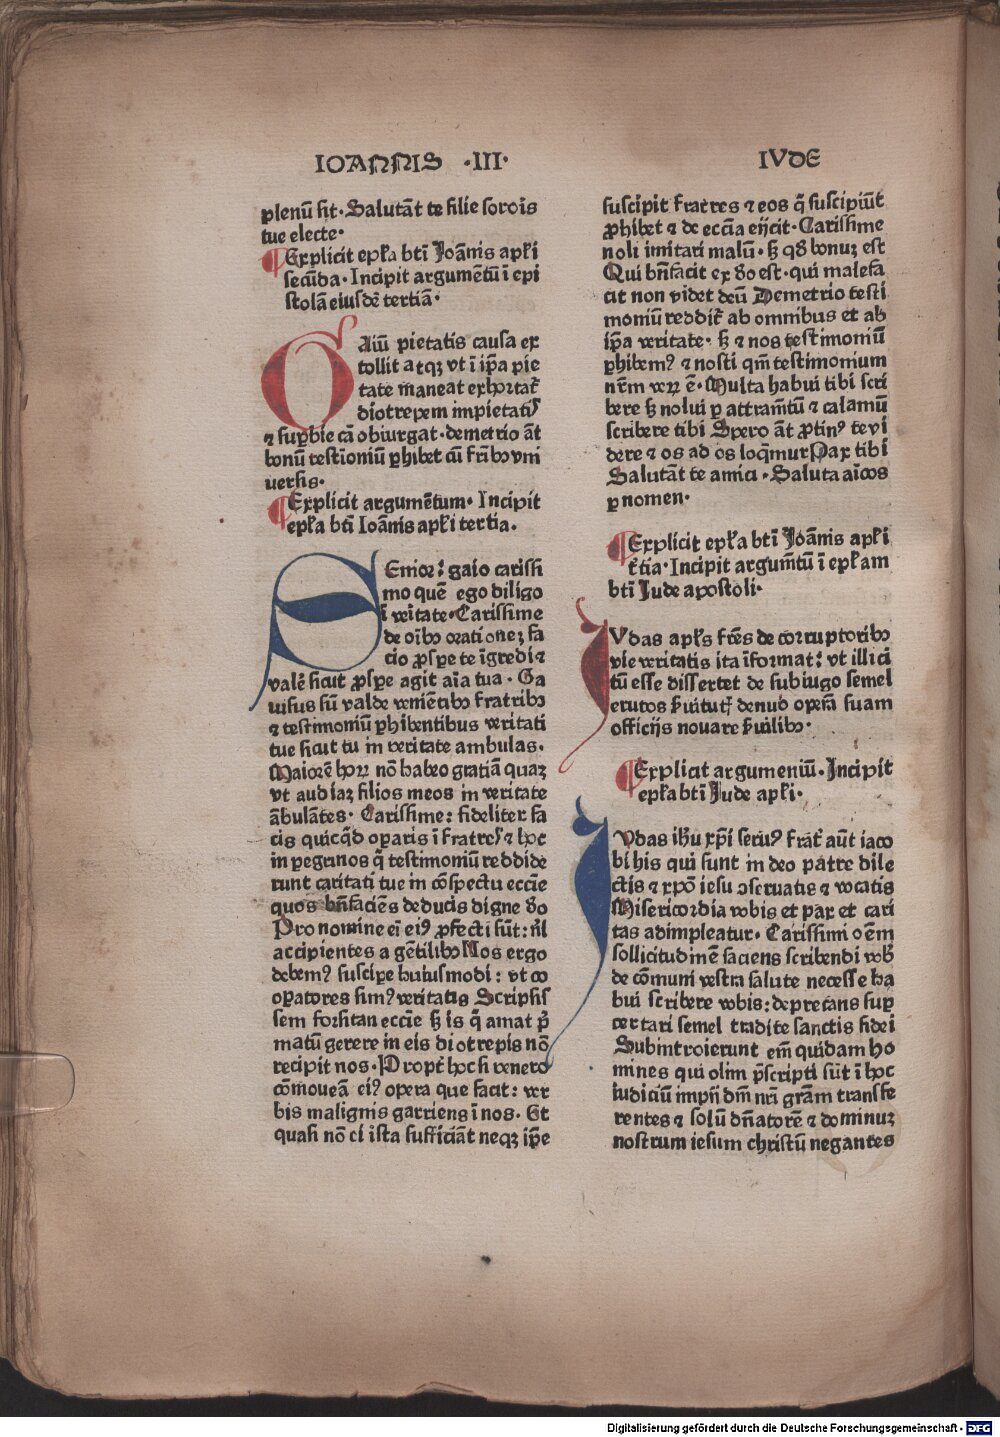 IOANNIS ·III·
plenū sit· Salutāt te filie sorois
tue electe·
¶Explicit epła btī Joānis apłi
secūda· Incipit argumētū ī epi
stolā eiusdē tertiā·
GAiū pietatis causa ex
tollit atqꝫ vt ī ip̄a pie
tate maneat exhortat̄
diotrepem impietatis
⁊ sup̄bie cā obiurgat· demetrio āt
bonū testīoniū ꝑhibet cū fr̄ibꝰ vni
uersis·
¶Explicit argumētum· Incipit
epła btī Ioānis apłi tertia.
SEnior: gaio carissi
mo quē ego diligo
ī v̄itate· Carissime
de oībꝰ orationeꝫ fa
cio ꝓsꝑe te īgredi ⁊
valē sicut ꝓsꝑe agit aīa tua· Ga
uisus sū valde veniētibꝰ fratribꝰ
⁊ testimoniū ꝑhibentibus veritati
tue sicut tu in veritate ambulas.
Maiorē hoꝝ nō habeo gratiā quaꝫ
vt audiaꝫ filios meos in veritate
ābulātes· Carissime: fideliter fa
cis quicq̄d oꝑaris ī fratres ⁊ hoc
in ꝑegrinos q̄ testimoniū reddide
runt caritati tue in cōspectu eccīe
quos bn̄faciēs deducis digne deo
Pro nomine eī eiꝰ ꝓfecti sūt: nīl
accipientes a gētilibꝰ Nos ergo
debemꝰ suscipe huiusmodi: vt co
oꝑatores simꝰ veritatis Scripsis
sem forsitan eccīe sꝫ is q̄ amat p̄
matū gerere in eis diotrepis nō
recipit nos· Propt̄ hoc si venero
cōmoueā eiꝰ opera que facit: ver
bis malignis garriens ī nos· Et
quasi nō ei ista sufficiāt neqꝫ ip̄e
IVDE
suscipit fratres ⁊ eos q̄ suscipiūt
ꝓhibet ⁊ de eccīa eijcit· Carissime
noli imitari malū· sꝫ qð bonuꝫ est
Qui bn̄facit ex deo est· qui malefa
cit non videt deū Demetrio testi
moniū reddit̄ ab omnibus et ab
ip̄a veritate· sꝫ ⁊ nos testimoniū
ꝑhibemꝰ ⁊ nosti qm̄ testimonium
nr̄m veꝝ ē· Multa habui tibi scri
bere sꝫ nolui ꝑ attram̄tū ⁊ calamū
scribere tibi Spero āt ꝓtinꝰ te vi
dere ⁊ os ad os loq̄mur Pax tibi
Salutāt te amici· Saluta aīcos
ꝑ nomen·
¶Explicit epła btī Joānis apłi
t̄tia· Incipit argum̄tū ī epłam
btī Jude apostoli·
IVdas apłs fr̄es de corruptoribꝰ
vie veritatis ita īformat: vt illici
tū esse dissertet de subiugo semel
erutos s̄uitutꝭ denuo opera suam
officijs nouare s̄uilibꝰ·
¶Explicit argumentū· Incipit
epła btī Jude apłi·
IVdas ihū xp̄i seruꝰ frat̄ aūt iaco
bi his qui sunt in deo patre dile
ctis ⁊ xp̄o iesu ↄseruatis ⁊ vocatis
Misericordia vobis et pax et cari
tas adimpleatur· Carissimi oēm
sollicitudinē faciens scribendi vob̄
de cōmuni vestra salute necesse ha
bui scribere vobis: deprecans suꝑ
certari semel tradite sanctis fidei
Subintroierunt em̄ quidam ho
mines qui olim p̄scripti sūt ī hoc
iudiciū impij dn̄i nr̄i gr̄am transfe
rentes ⁊ solū dn̄atorē ⁊ dominuꝫ
nostrum iesum christū negantes
Digitalisierung gefördert durch die Deutsche Forschungsgemeinschaft - DFG